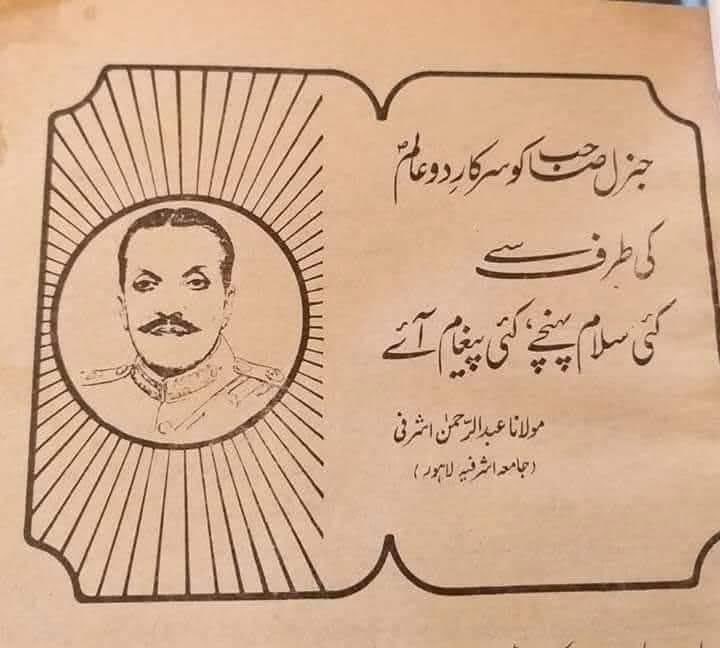 جنرل صاحب کو سرکارِ دو عالمؐ
کی طرف سے
کئی سلام پہنچے، کئی پیغام آئے
مولانا عبدالرّحمٰن اشرفی
(جامعہ اشرفیہ لاہور)